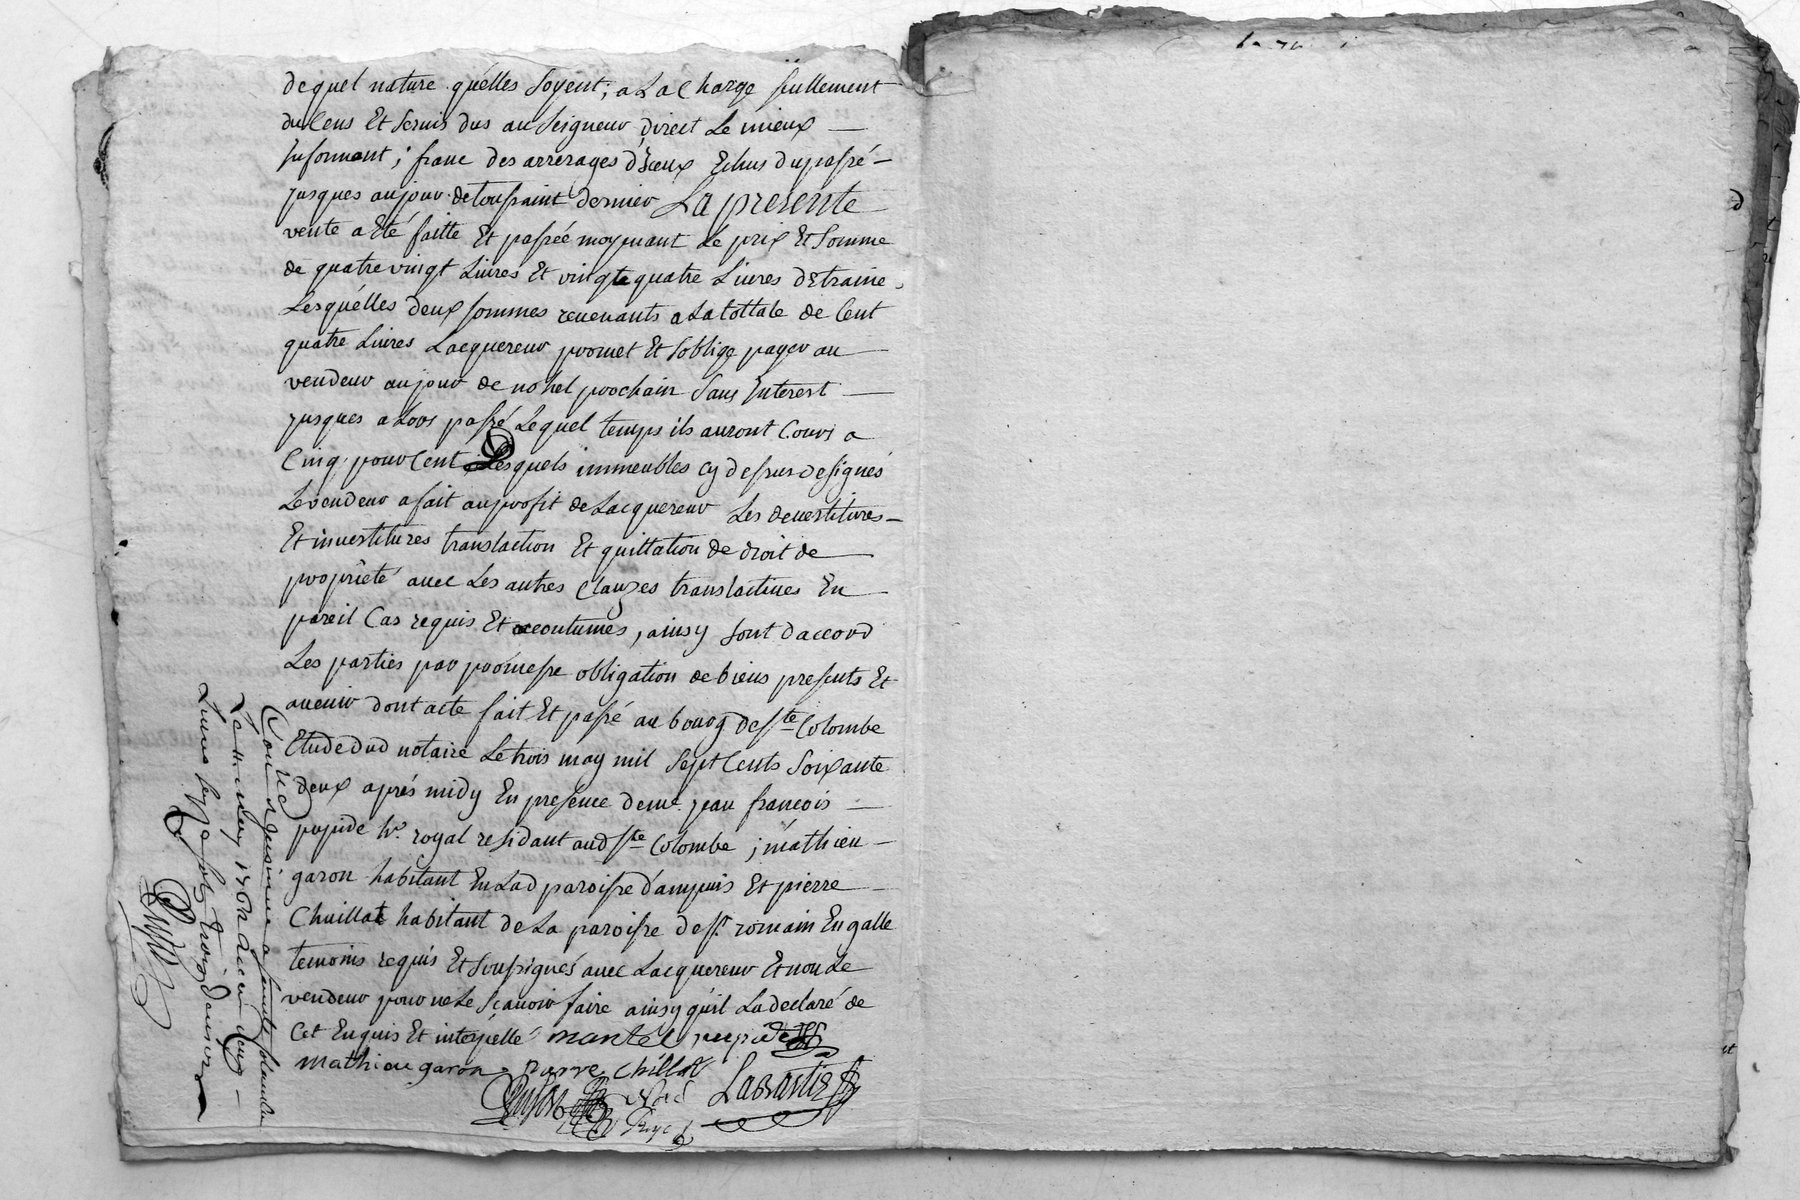 de quel nature quélles soyent; a La Charge seullement
du Cens Et servis dus au seigneur direct Le mieux
Informant; franc des arrerages d'Iceux Echus du passé
jusques au jour de toussaint dernier La presente
vente a Eté faitte Et passéé moyenant Le prix Et somme
de quatre vingt Livres Et vingt quatre Livres d'Etraine,
Lesquélles deux sommes revenants a La tottale de Cent
quatre Livres Lacquereur promet Et soblige payer au
vendeur au jour de nohel prochain sans Interest
jusques a Lors passé Lequel temps ils auront Cours a
Cinq pour Cent Desquels immeubles cy dessus designés
Le vendeur a fait au profit de Lacquereur Les devestitures
Et investitures translaction Et quittation de droit de
proprieté avec Les autres Clauzes translactives En
pareil Cas requis Et accoutumés, ainsy sont daccord
Les parties par promesse obligation de biens presents Et
avenir dont acte fait Et passé au bourg de Ste Colombe
Etude dud notaire Le trois may mil sept Cents soixante
deux aprés midy En presence de me jean francois
pupide hr. royal residant aud Ste Colombe; mathieu
garon habitant En Lad paroisse d'ampuis Et pierre
Chuillat habitant de La paroisse de St. romain En galle
temoins requis Et soussignés avec Lacquereur Et non Le
vendeur pour ne Le sçavoir faire ainsy quil La declaré de
Cet Enquis Et interpéllé mantel pupide
mathieu garon pierre Chillat
Labrastie